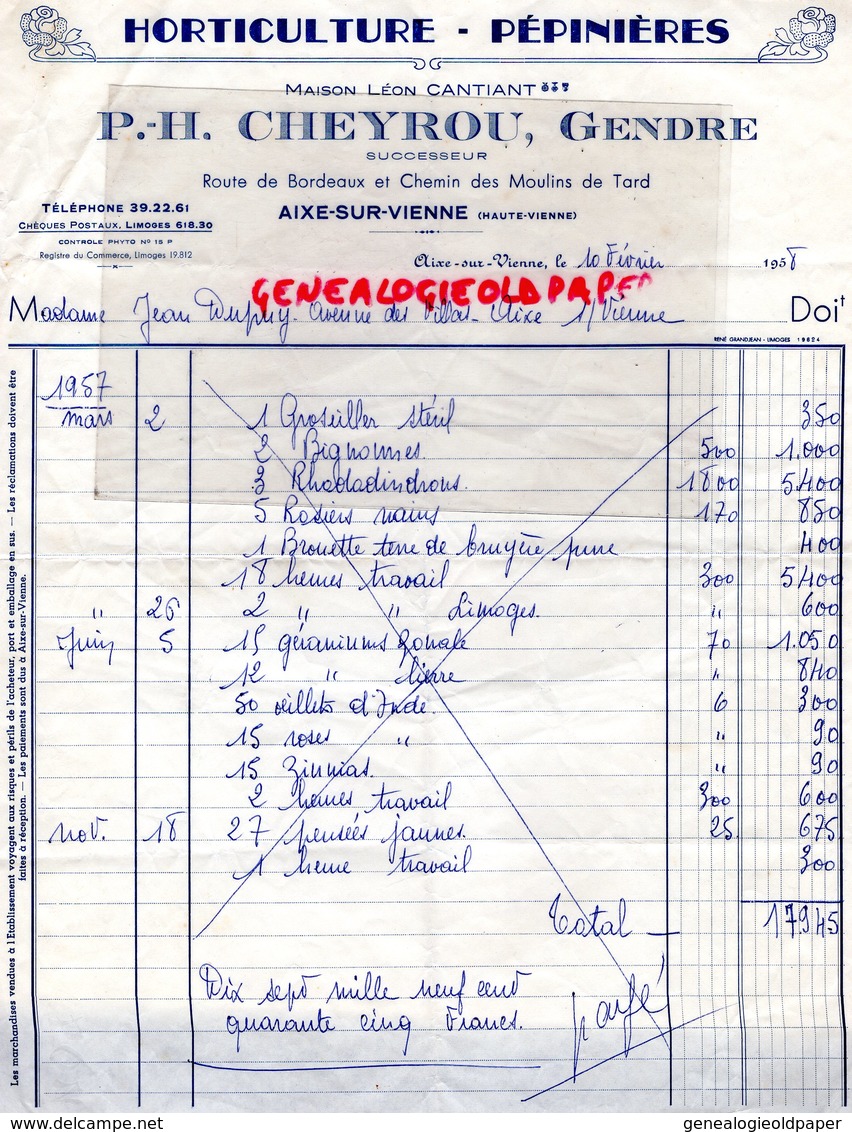 HORTICULTURE - PÉPINIÈRES
MAISON LÉON CANTIANT
P.-H. CHEYROU, GENDRE
SUCCESSEUR
Route de Bordeaux et Chemin des Moulins de Tard
TÉLÉPHONE 39.22.61
AIXE-SUR-VIENNE (HAUTE-VIENNE)
CHÈQUES POSTAUX, LIMOGES 618.30
CONTROLE PHYTO No 15 P
Registre du Commerce, Limoges 19.812
Aixe-sur-Vienne, le 10 Février 1958
GENEALOGIEOLDPAPER
Madame Jean Dupuy. Avenue des Villas - Aixe s/Vienne Doit
RENÉ GRANDJEAN - LIMOGES 19624
1957
mars 2 1 Groseiller stéril 350
2 Bignonnes. 500 1.000
3 Rhododindrons. 1800 5400
5 Rosiers nains 170 850
1 Brouette terre de bruyère pure 400
18 heures travail 300 5400
" 26 2 " " Limoges. " 600
Juin 5 15 géraniums zonale 70 1.050
12 " lierre " 840
50 œillets d'Inde. 6 300
15 roses " " 90
15 Zinnias. " 90
2 heures travail 300 600
nov. 18 27 pensées jaunes. 25 675
1 heure travail 300
Total — 17945
Dix sept mille neuf cent
quarante cinq Francs.
payé
Les marchandises vendues à l'Etablissement voyagent aux risques et périls de l'acheteur, port et emballage en sus. — Les réclamations doivent être
faites à réception. — Les paiements sont dus à Aixe-sur-Vienne.
genealogieoldpaper